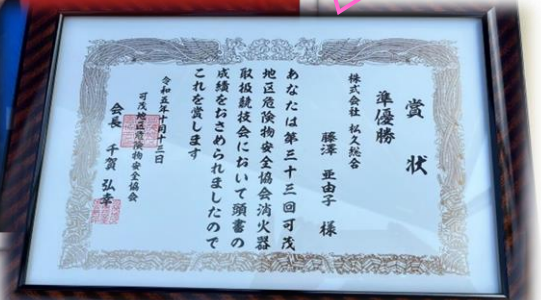 賞状
準優勝
株式会社 松久総合
藤澤 亜由子 様
あなたは第三十三回可茂
地区危険物安全協会消火器
取扱競技会において頭書の
成績をおさめられましたので
これを賞します
令和五年十月十三日
可茂地区危険物安全協会
会長 千賀 弘幸